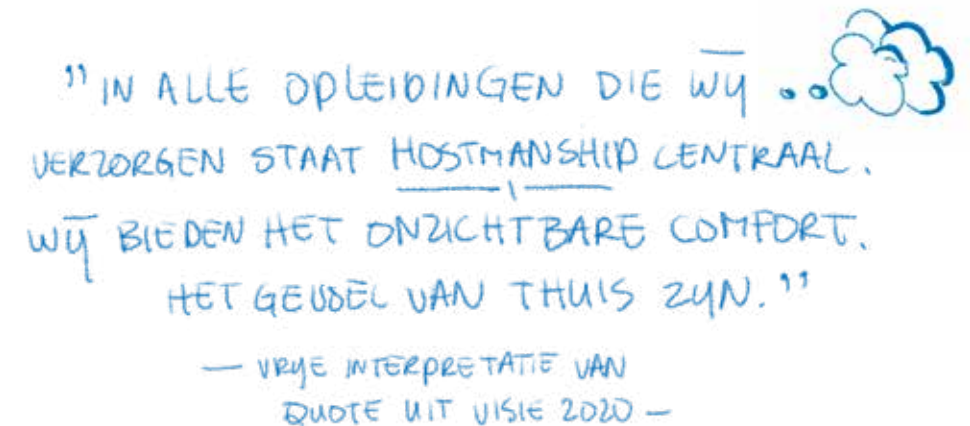 "IN ALLE OPLEIDINGEN DIE WIJ
VERZORGEN STAAT HOSTMANSHIP CENTRAAL.
WIJ BIEDEN HET ONZICHTBARE COMFORT.
HET GEVOEL VAN THUIS ZIJN."
— VRIJE INTERPRETATIE VAN
QUOTE UIT VISIE 2020 —